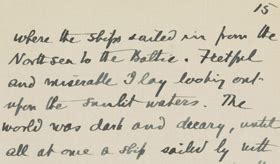 15
where the ships sailed in from the
North sea to the Baltic. Fretful
and miserable I lay looking out
upon the sunlit waters. The
world was dark and dreary, until
all at once a ship sailed by with